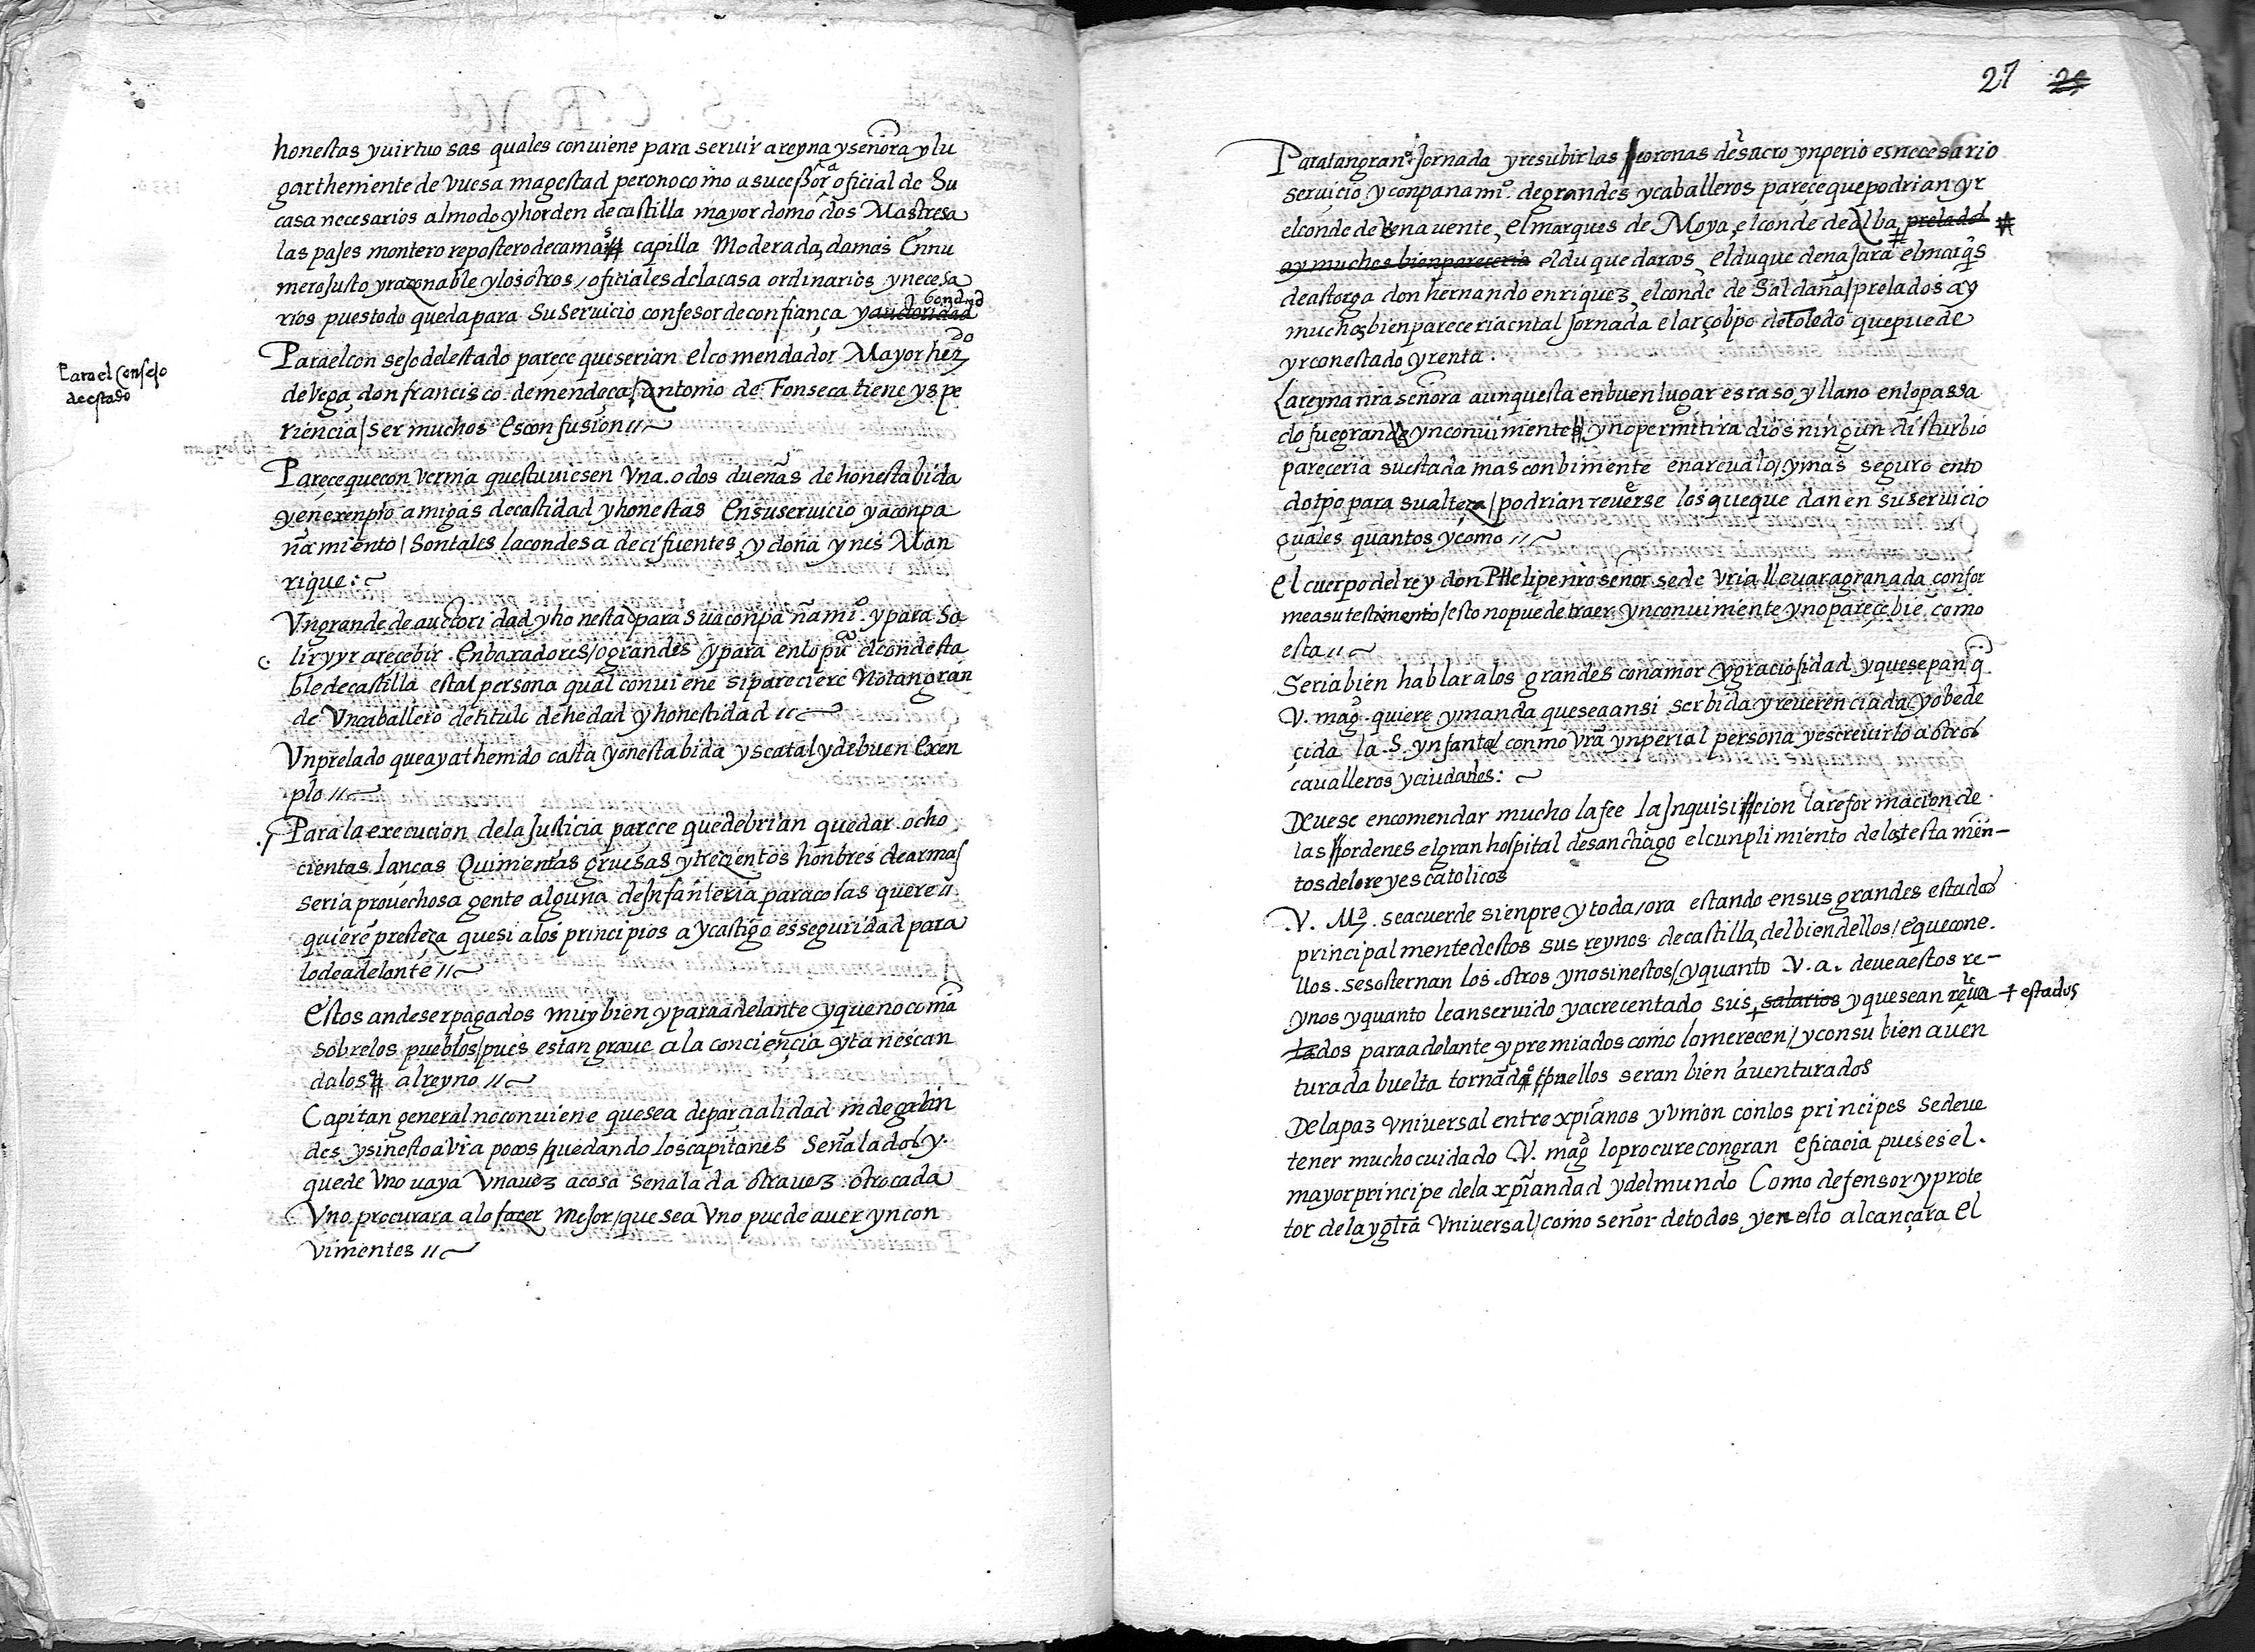 honestas y uirtuosas quales conuiene para seruir a reyna y señora y lu
gartheniente de vuesa magestad pero no como a sucessora oficial de su
casa necesarios al modo y horden de castilla mayordomo dos Mastresa
las pajes montero repostero de camas capilla Moderada, damas En nu
mero justo y razonable y los otros / oficiales de la casa ordinarios y necesa
rios pues todo queda para su Seruicio confesor de confiança y auctoridad bondad
Para el consejo del estado pareçe que serian el comendador Mayor herdo
de Vega, don francisco de mendoça / antonio de Fonseca tiene yspe
riencia / ser muchos es confusion //
Para el Consejo
de estado
Pareçe que convernia questuuiesen Vna o dos dueñas de honesta bida
y en exenplo amigas de castidad y honestas En su seruicio y aconpa
ñamiento / Son tales la condesa de cifuentes, y doña ynes Man
rique :
Vn grande de auctoridad y honestad para su aconpañamio. y para sa
lir y yr a reçebir Enbaxadores / o grandes y para en lo puco el condesta
ble de castilla es tal persona qual conuiene si pareciere No tan gran
de Vn caballero de titulo de hedad y honestidad //
Vn prelado que aya thenido casta y onesta bida ys catal y de buen Exen
plo //
Para la execucion de la Justicia pareçe que debrian quedar ocho
cientas lanças Quinientas gruesas y trezientos honbres de armas
seria prouechosa gente alguna de Infanteria para cosas quere //
quiere presteza que si a los principios ay castigo es seguridad para
lo de adelante //
Estos an de ser pagados muy bien y para adelante y que no coma
sobre los pueblos / pues es tan graue a la conciençia y tan escan
daloso al reyno //
Capitan general no conuiene que sea de parcialidad ni de gran
des y sin esto avra pocos / quedando los capitanes Señalados y.
quede Vno uaya Vna uez a cosa señalada otra uez otro cada
Vno procurara a lo fazer Mejor / que sea Vno puede auer yncon
vinientes //
27 29
Para tan grand Jornada y resubir las coronas del sacro ynperio es necesario
seruiçio y conpanamio. de grandes y caballeros pareçe que podrian yr
el conde de Benauente, el marques de Moya, el conde de Alba prelados
ay muchos bien pareceria el duque darcos, el duque de najara el marqs
de astorga don hernando enriquez, el conde de Saldaña / prelados ay
muchos bien pareceria en tal Jornada el arçobpo de Toledo que puede
yr con estado y renta .
La reyna nra señora aunquesta en buen lugar es raso y llano en lo passa
do fue grande ynconuiniente y no permitira dios ningun disturbio
pareceria su estada mas conbiniente en areualo, y mas seguro en to
do tpo para su alteza / podrian reuerse los que quedan en su seruicio
quales quantos y como //
El cuerpo del rey don PHelipe nro señor se deVria lleuar a granada confor
me a su testamento / esto no puede traer ynconuiniente y no pareçe bie. como
esta //
Seria bien hablar a los grandes con amor y graciosidad y que sepan q
V. magd. quiere y manda que sea ansi serbida y reuerenciada y obede
çida la S. ynfanta como Vra ynperial persona y escreuirlo a otros
caualleros y ciudades :
DEuese encomendar mucho la fee la Inquisicion la reformacion de
las ordenes el gran hospital de sanctiago el cunplimiento de los testamen-
tos de lo reyes catolicos
V. Md. se acuerde sienpre y toda / ora estando en sus grandes estados
principalmente destos sus reynos de castilla, del bien dellos / E que cone.
llos. se sosternan los otros y no sin estos / y quanto V. a. deue a estos re-
ynos y quanto le an seruido y acrecentado sus + salarios y que sean reule + estados
tados para adelante y premiados como lo merecen / y con su bien auen
turada buelta tornado con ellos seran bien auenturados
De la paz vniversal entre xpianos y vnion con los principes se deue
tener mucho cuidado V. magd lo procure con gran eficacia pues es el .
mayor principe de la xpiandad y del mundo Como defensor y prote
tor de la yglia Vniuersal / como señor de todos y en esto alcançara el